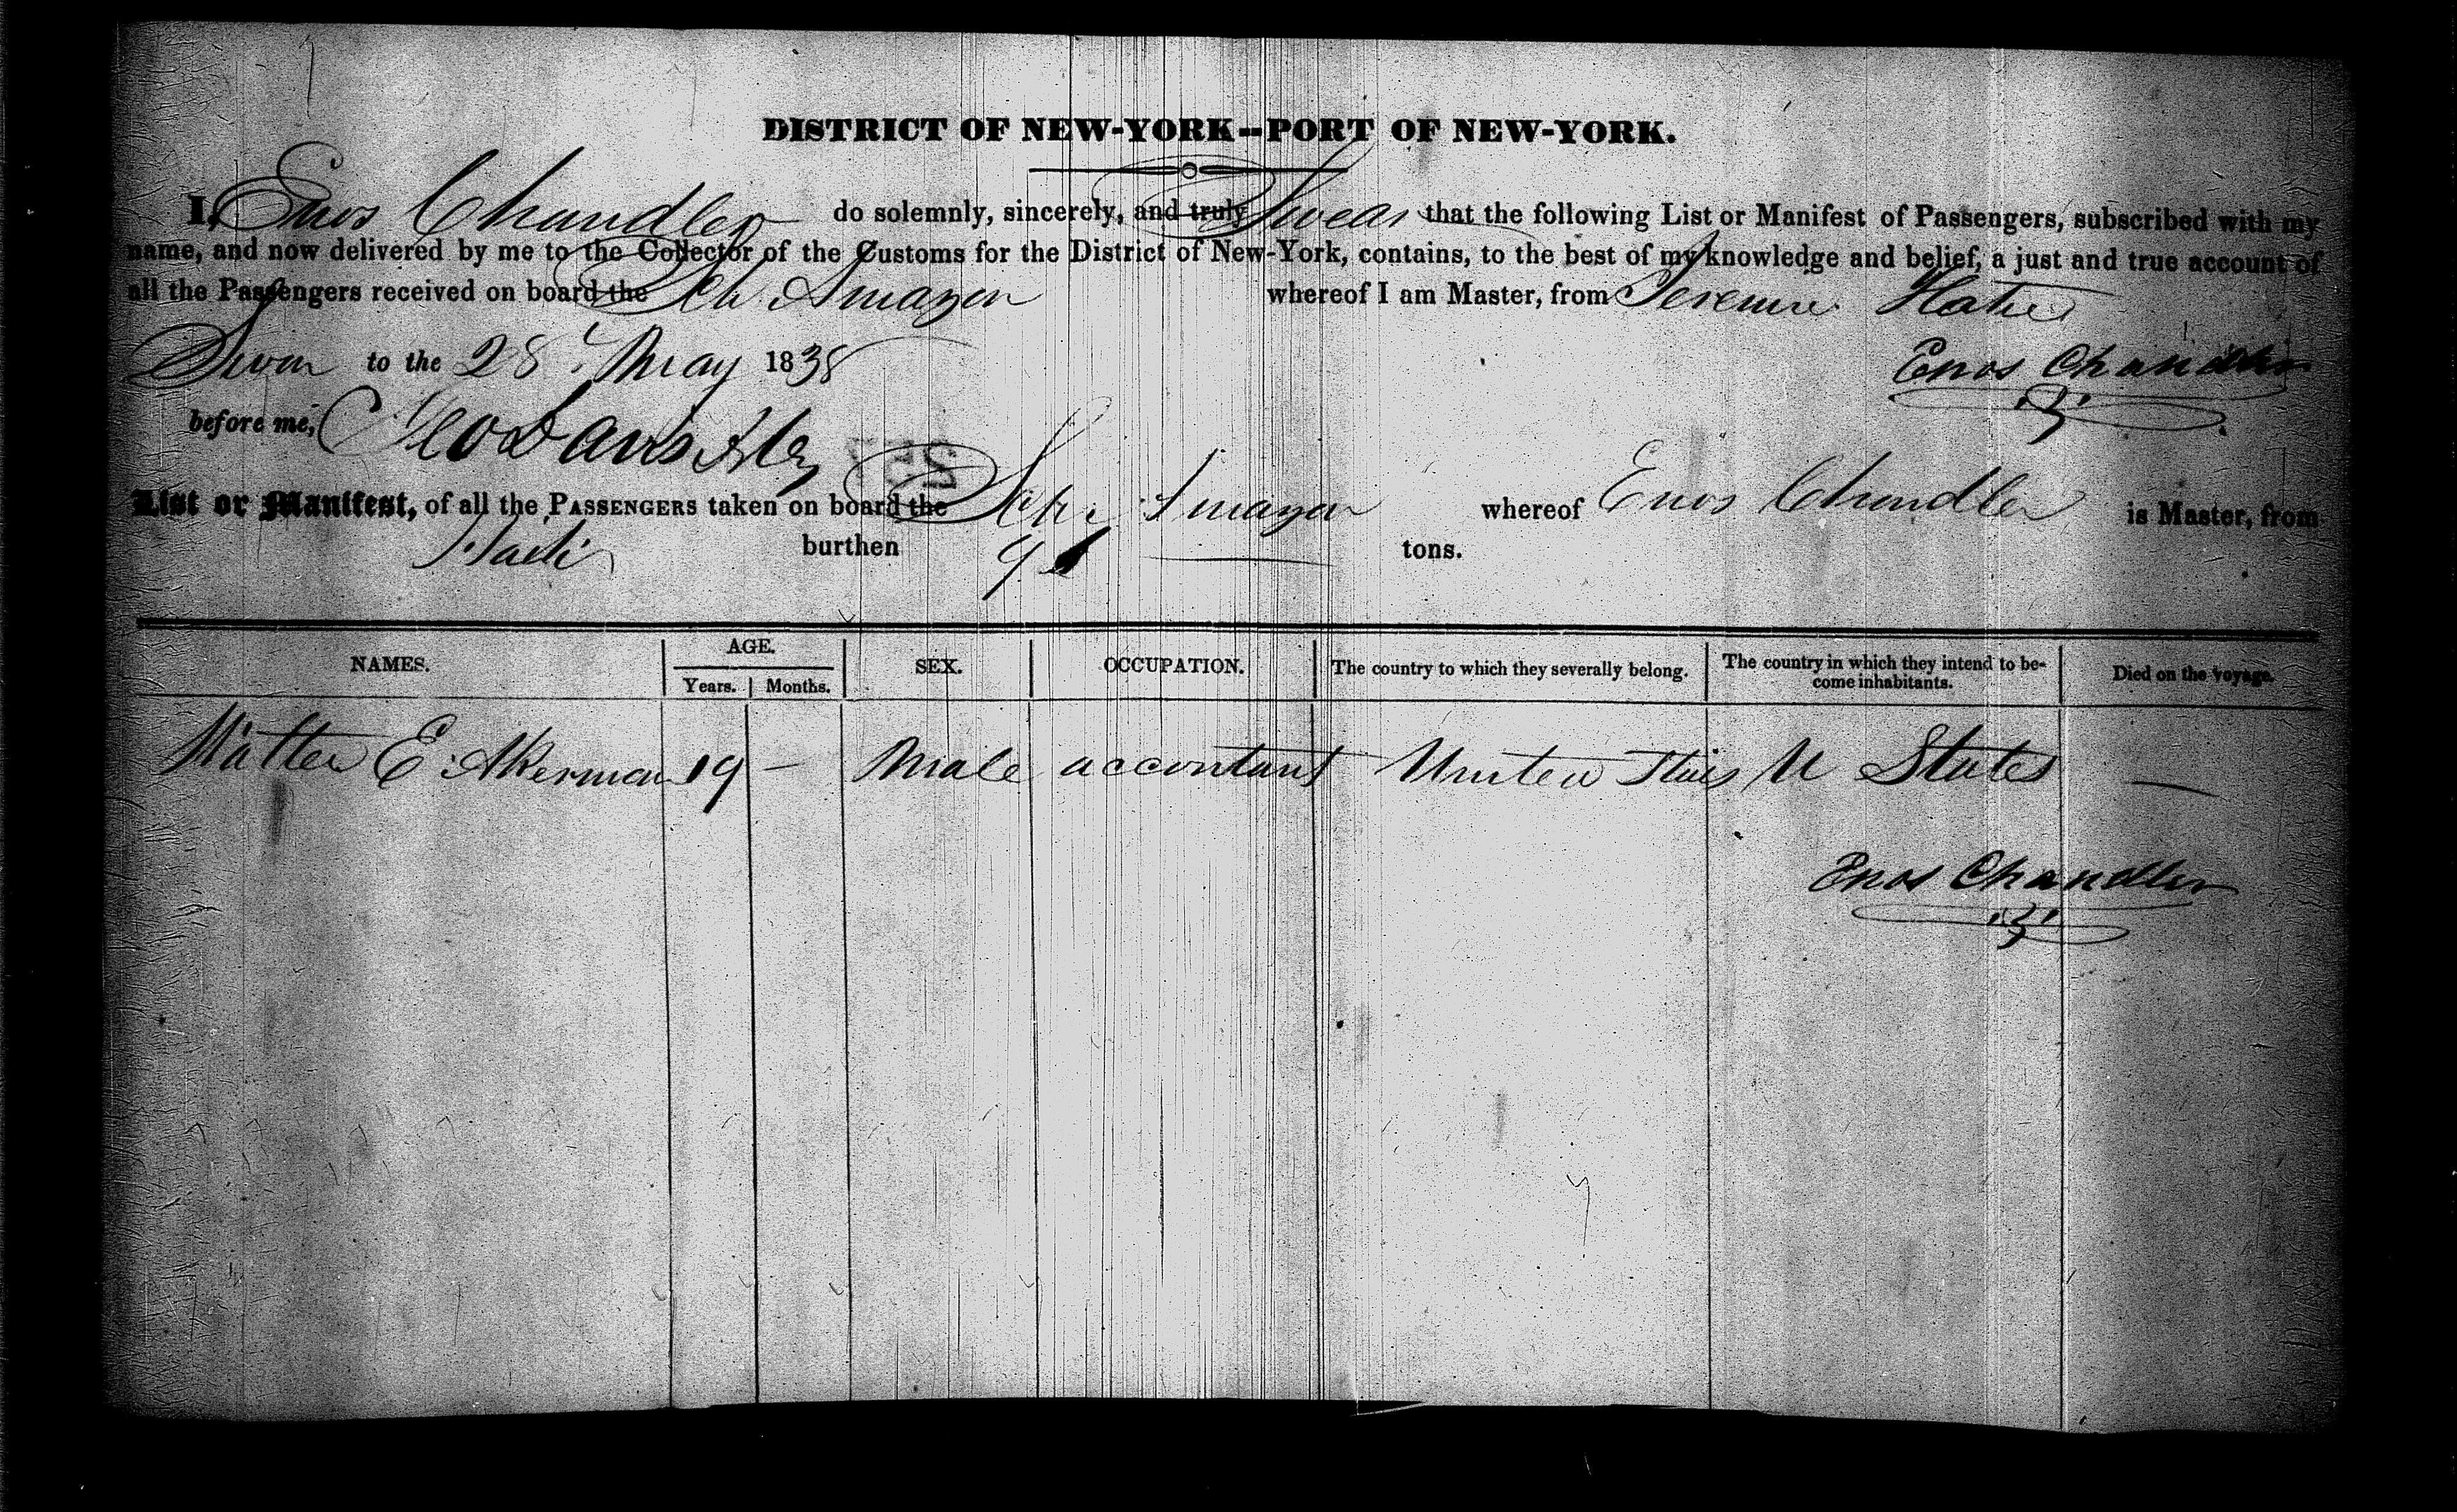 DISTRICT OF NEW-YORK--PORT OF NEW-YORK.
I, Enos Chandler do solemnly, sincerely, and truly Swear that the following List or Manifest of Passengers, subscribed with my
name, and now delivered by me to the Collector of the Customs for the District of New-York, contains, to the best of my knowledge and belief, a just and true account of
all the Passengers received on board the Sch Amazon whereof I am Master, from Jeremie Hatie
Sworn to the 28 May 1838 Enos Chandler
before me, Geo Davis
List or Manifest, of all the PASSENGERS taken on board the Schr Amazon whereof Enos Chandler is Master, from
Haiti burthen tons.
NAMES. AGE. SEX. OCCUPATION. The country to which they severally belong. The country in which they intend to be-come inhabitants. Died on the voyage.
Years. Months.
Walter E. Akerman 19 — Male accontant United States U States —
Enos Chandler